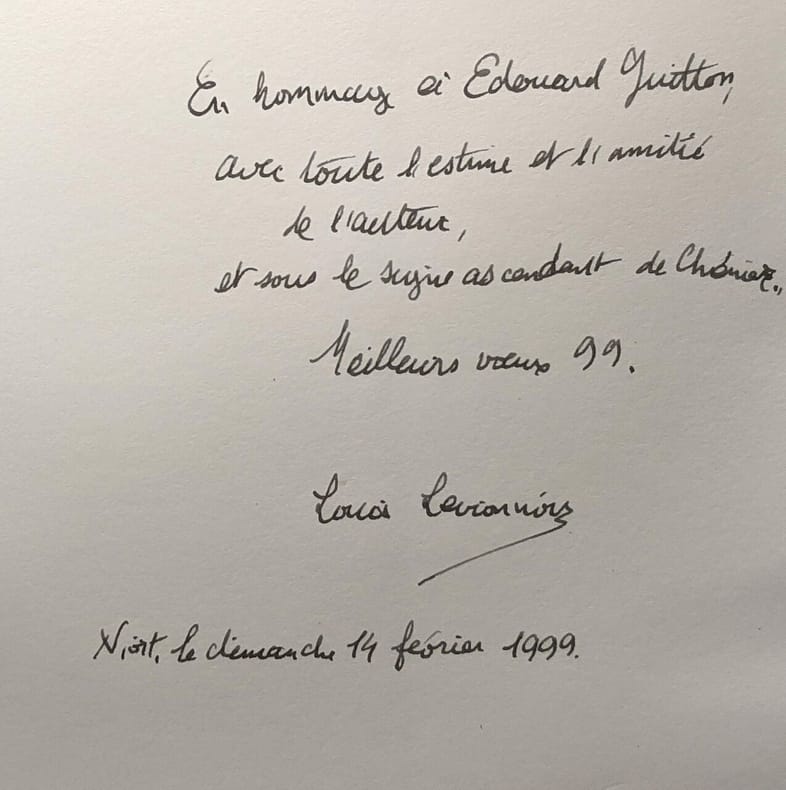 En hommage à Edouard Guitton,
avec toute l'estime et l'amitié
de l'auteur,
et sous le signe ascendant de Chénier.
Meilleurs vœux 99.
Louis Levionnois
Niort, le dimanche 14 février 1999.